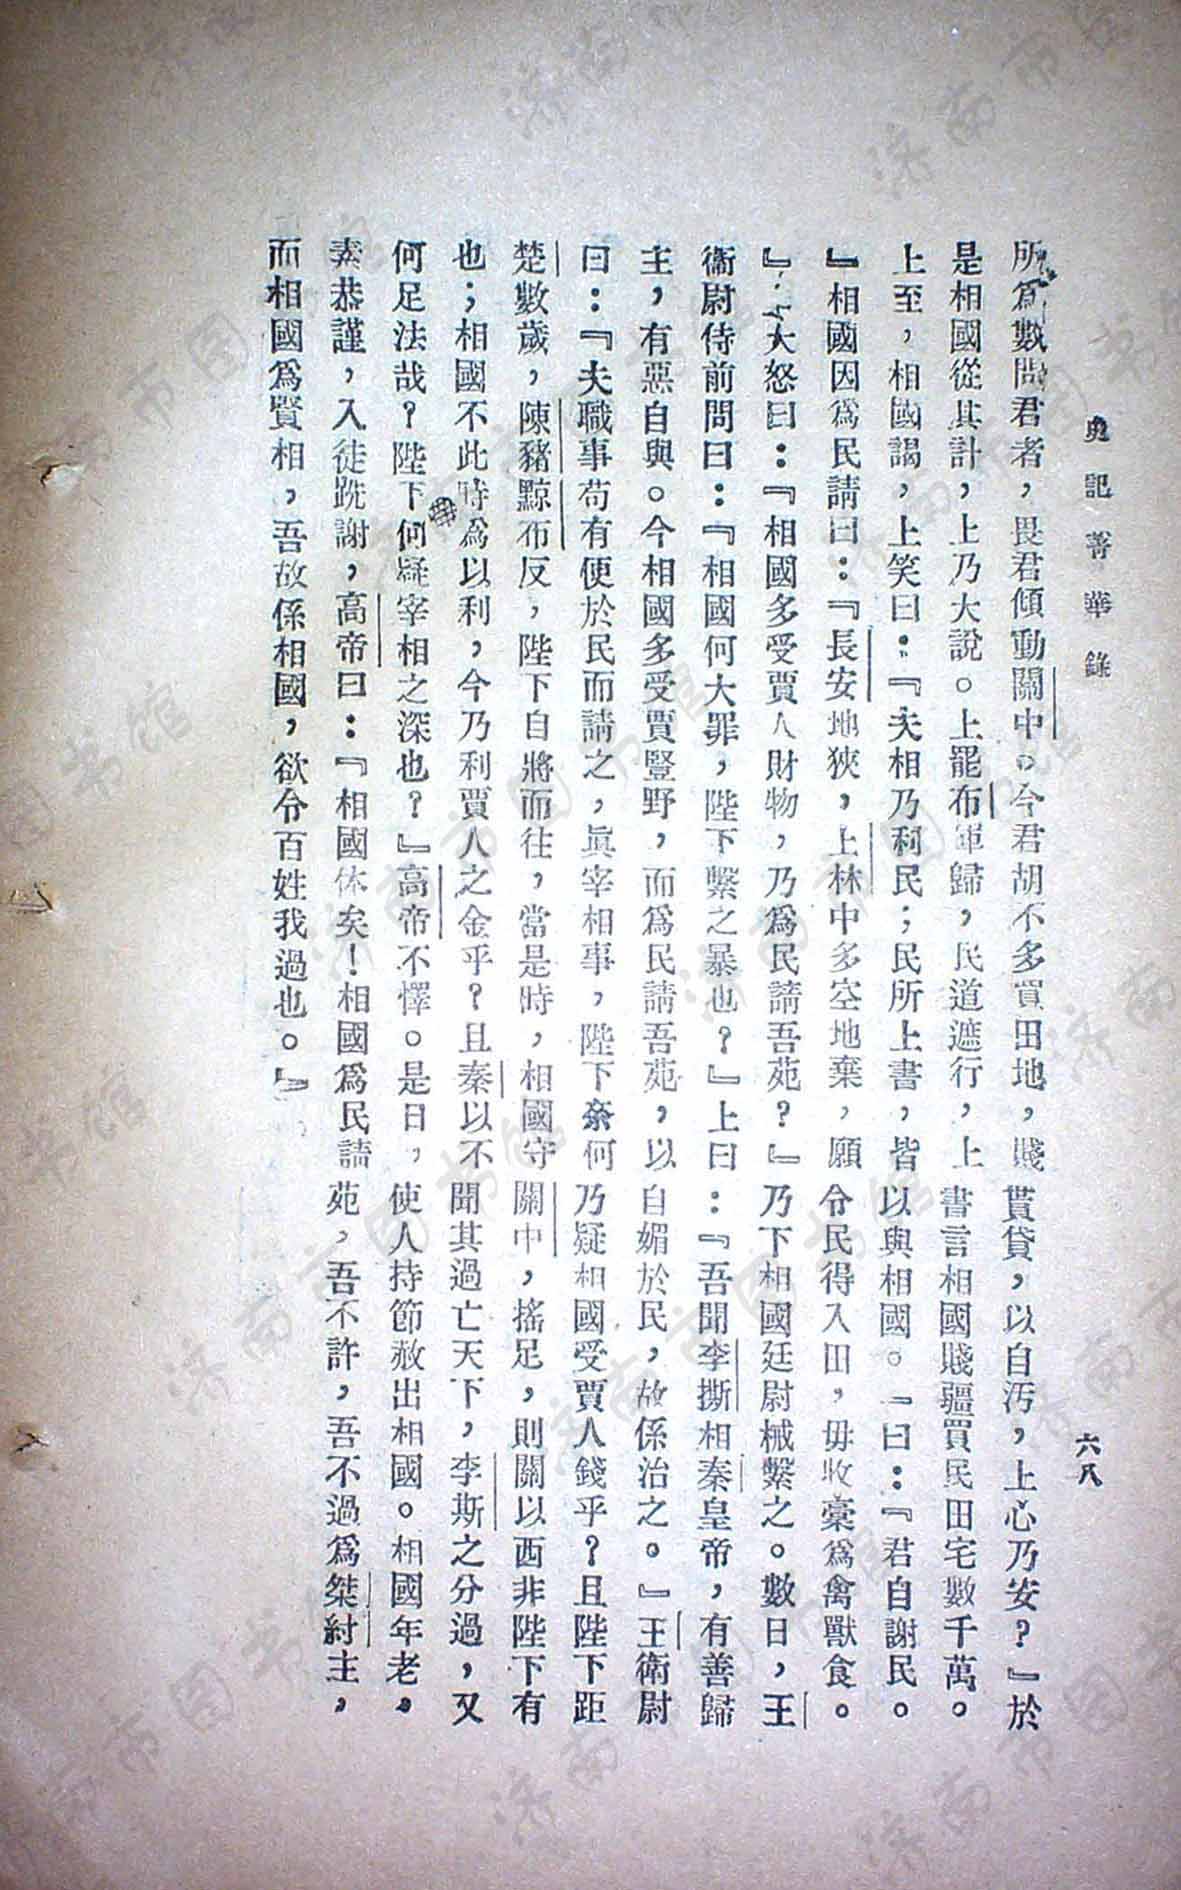 史記菁華錄
六八
所爲數問君者，畏君傾動關中。今君胡不多買田地，賤貰貸，以自汚，上心乃安？』於
是相國從其計，上乃大說。上罷布軍歸，民道遮行，上書言相國賤彊買民田宅數千萬。
上至，相國謁，上笑曰：『夫相乃利民；民所上書，皆以與相國。『曰：『君自謝民。
』相國因爲民請曰：『長安地狹，上林中多空地棄，願令民得入田，毋收稾爲禽獸食。
』大怒曰：『相國多受賈人財物，乃爲民請吾苑？』乃下相國廷尉械繫之。數日，王
衞尉侍前問曰：『相國何大罪，陛下繫之暴也？』上曰：『吾聞李撕相秦皇帝，有善歸
主，有惡自與。今相國多受賈豎野，而爲民請吾苑，以自媚於民，故係治之。』王衛尉
曰：『夫職事苟有便於民而請之，眞宰相事，陛下奈何乃疑相國受賈人錢乎？且陛下距
楚數歲，陳豨黥布反，陛下自將而往，當是時，相國守關中，搖足，則關以西非陛下有
也；相國不此時爲以利，今乃利賈人之金乎？且秦以不聞其過亡天下，李斯之分過，又
何足法哉？陛下何疑宰相之深也？』高帝不懌。是日，使人持節赦出相國。相國年老，
素恭謹，入徒跣謝，高帝曰：『相國休矣！相國爲民請苑，吾不許，吾不過爲桀紂主，
而相國爲賢相，吾故係相國，欲令百姓我過也。』
济南市图书馆